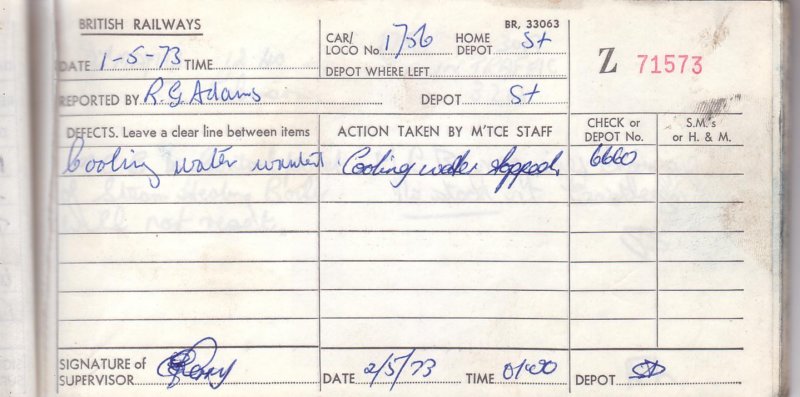 BRITISH RAILWAYS
BR, 33063
DATE 1-5-73 TIME
CAR/ LOCO No. 1756 HOME DEPOT St
DEPOT WHERE LEFT
Z 71573
REPORTED BY R.G. Adams DEPOT St
DEFECTS. Leave a clear line between items
ACTION TAKEN BY M'TCE STAFF
CHECK or DEPOT No.
S.M's or H. & M.
Cooling water wanted
Cooling water stopped
6660
will not
SIGNATURE of SUPERVISOR
DATE 2/5/73 TIME DEPOT